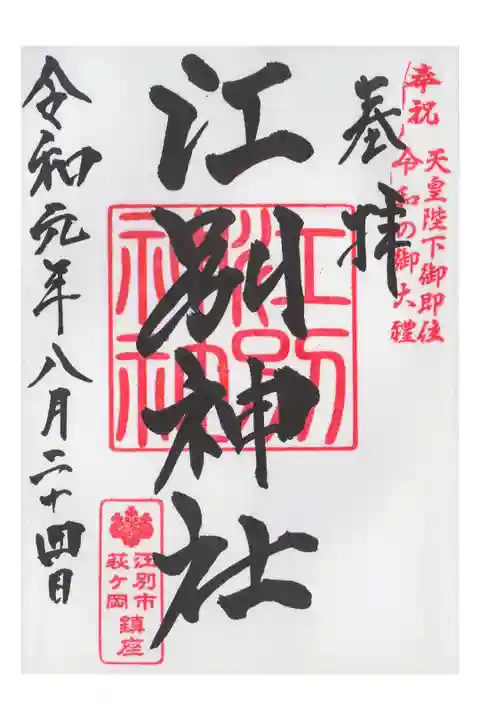 奉祝
天皇陛下御即位
令和の御大禮
奉拝
江別神社
江別神社
江別市
萩ヶ岡
鎮座
令和元年八月二十四日